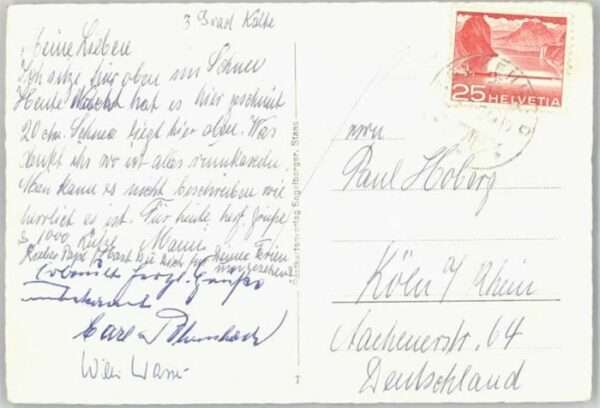 3 Grad Kälte
Meine Lieben
Ich sitze hier oben im Schnee
Heute Nacht hat es hier geschneit
20 cm. Schnee liegt hier oben. Was
denkt ihr wo ist alles
Man kann es nicht beschreiben wie
herrlich es ist. Für heute herzl. Grüße
u 1000 Küsse Mami
Lieber Papi hast Du Dich für Deine Ferien
herzl. Grüße
unbekannt
Carl
Willi
Postkartenverlag Engelberger, Stans
25 HELVETIA
Herrn
Paul Hoberg
Köln a/ Rhein
Aachenerstr. 64
Deutschland